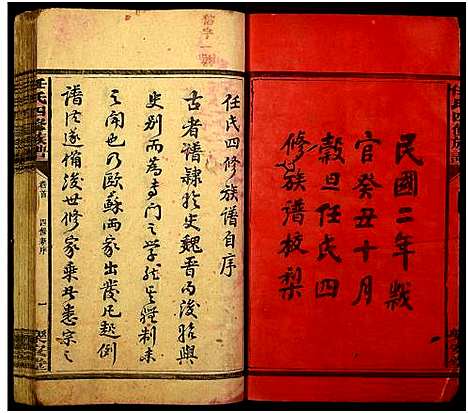 民國二年歲
官癸丑十月
穀旦任氏四
修族譜校梨
任氏四修族譜自序
古者譜隸於史魏晉而後始與
史別而為專門之學然其體制未
之聞也乃歐蘇兩家出發凡起例
譜法遂備後世修家乘者悉宗之
任氏四修族譜
卷首
四修新序
一
樂安堂